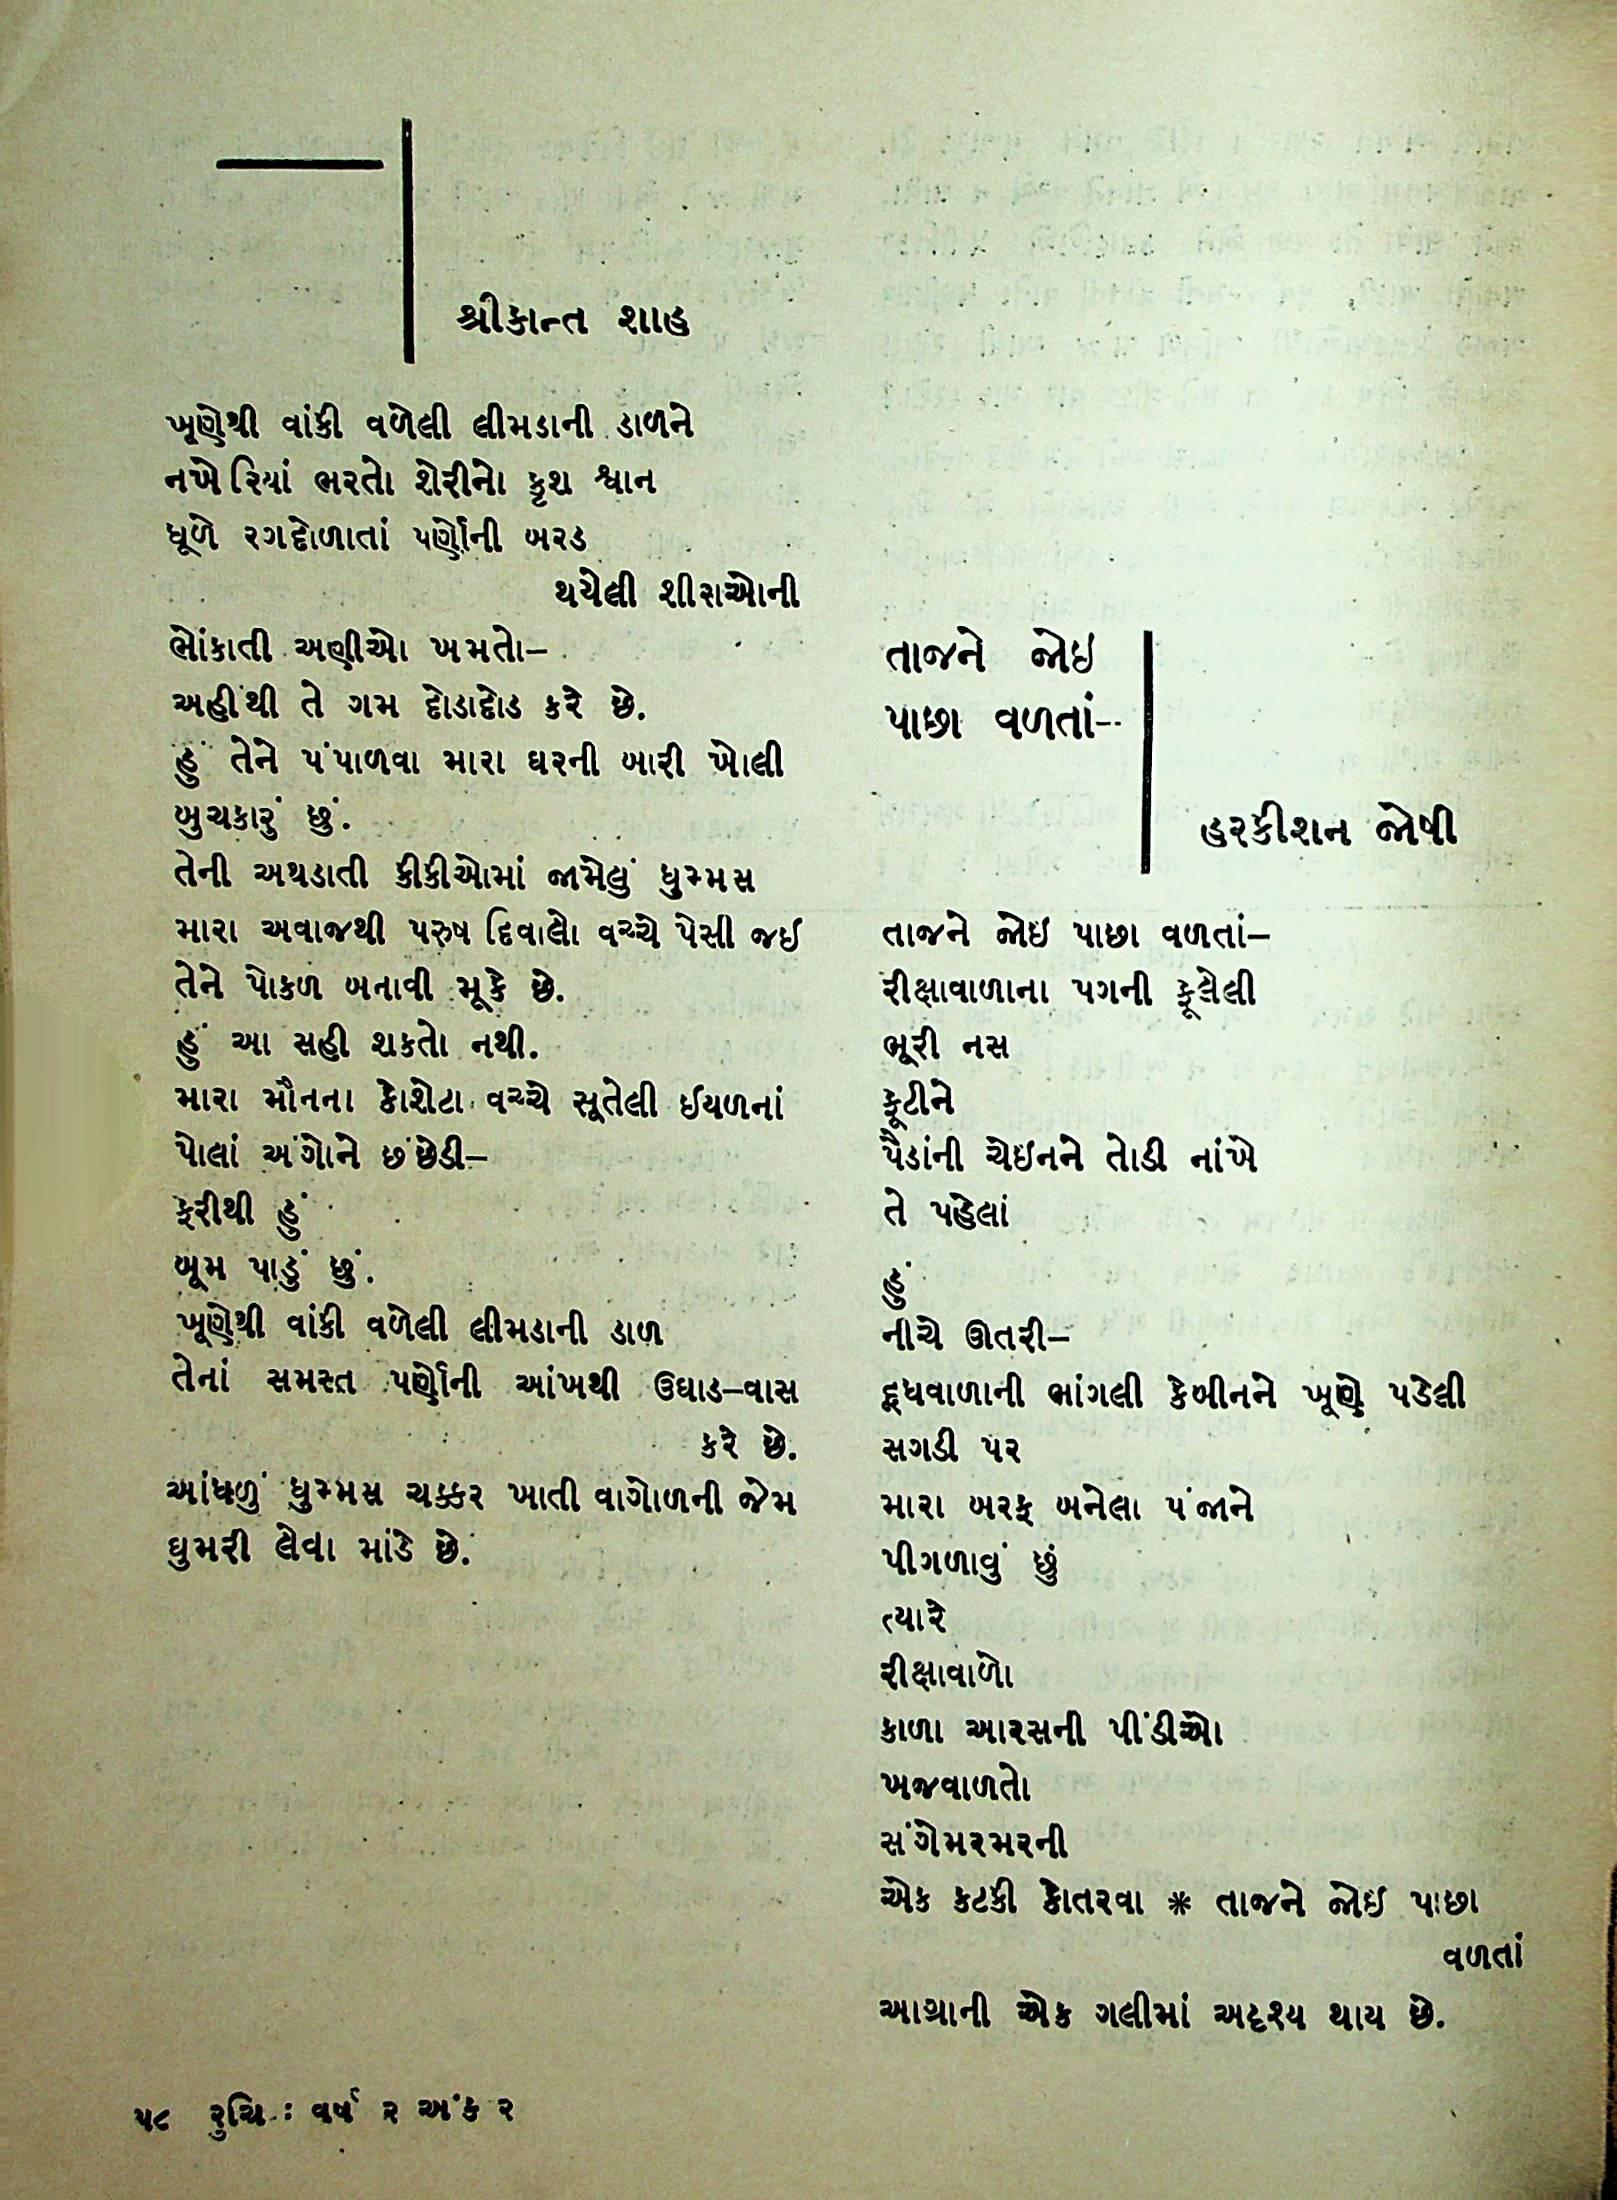 શ્રીકાન્ત શાહ
ખૂણેથી વાંકી વળેલી લીમડાની ડાળને
નખોરિયાં ભરતો શેરીનો કૃશ શ્વાન
ધૂળે રગદોળાતાં પર્ણોની બરડ
થયેલી શીરાઓની
ભોંકાતી અણીઓ ખમતો–
અહીંથી તે ગમ દોડાદોડ કરે છે.
હું તેને પંપાળવા મારા ઘરની બારી ખોલી
બુચકારું છું.
તેની અથડાતી કીકીઓમાં જામેલું ધુમ્મસ
મારા અવાજથી પરુષ દિવાલો વચ્ચે પેસી જઇ
તેને પોકળ બનાવી મૂકે છે.
હું આ સહી શકતો નથી.
મારા મૌનના કોશેટા વચ્ચે સૂતેલી ઈયળનાં
પોલાં અંગોને છંછેડી–
ફરીથી હું
બૂમ પાડું છું.
ખૂણેથી વાંકી વળેલી લીમડાની ડાળ
તેનાં સમસ્ત પર્ણોની આંખથી ઉઘાડ–વાસ
કરે છે.
આંધળું ધુમ્મસ ચક્કર ખાતી વાગોળની જેમ
ઘુમરી લેવા માંડે છે.
તાજને જોઇ
પાછા વળતાં–
હરકીશન જોષી
તાજને જોઇ પાછા વળતાં–
રીક્ષાવાળાના પગની ફૂલેલી
ભૂરી નસ
ફૂટીને
પૈડાંની ચેઇનને તોડી નાંખે
તે પહેલાં
હું
નીચે ઊતરી–
દૂધવાળાની ભાંગલી કેબીનને ખૂણે પડેલી
સગડી પર
મારા બરફ બનેલા પંજાને
પીગળાવું છું
ત્યારે
રીક્ષાવાળો
કાળા આરસની પીંડીઓ
ખજવાળતો
સંગેમરમરની
એક કટકી કોતરવા * તાજને જોઈ પાછા
વળતાં
આગ્રાની એક ગલીમાં અદૃશ્ય થાય છે.
૫૮ રુચિ : વર્ષ ૨ અંક ૨